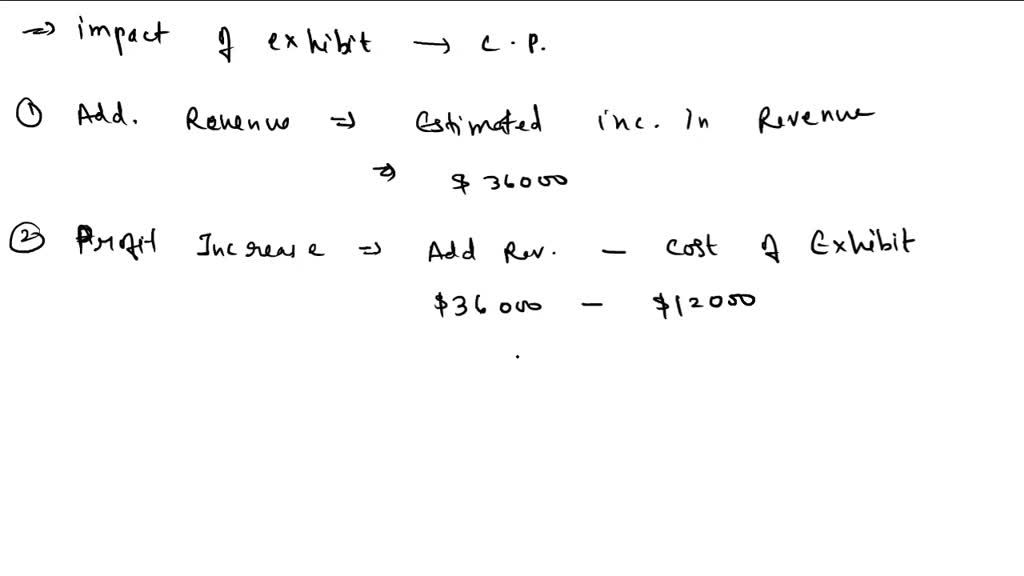 ⇒ impact of exhibit → C.P.
① Add. Revenue ⇒ Estimated inc. in Revenue
⇒ $ 36000
② Profit Increase ⇒ Add Rev. – Cost of Exhibit
$36000 – $12000